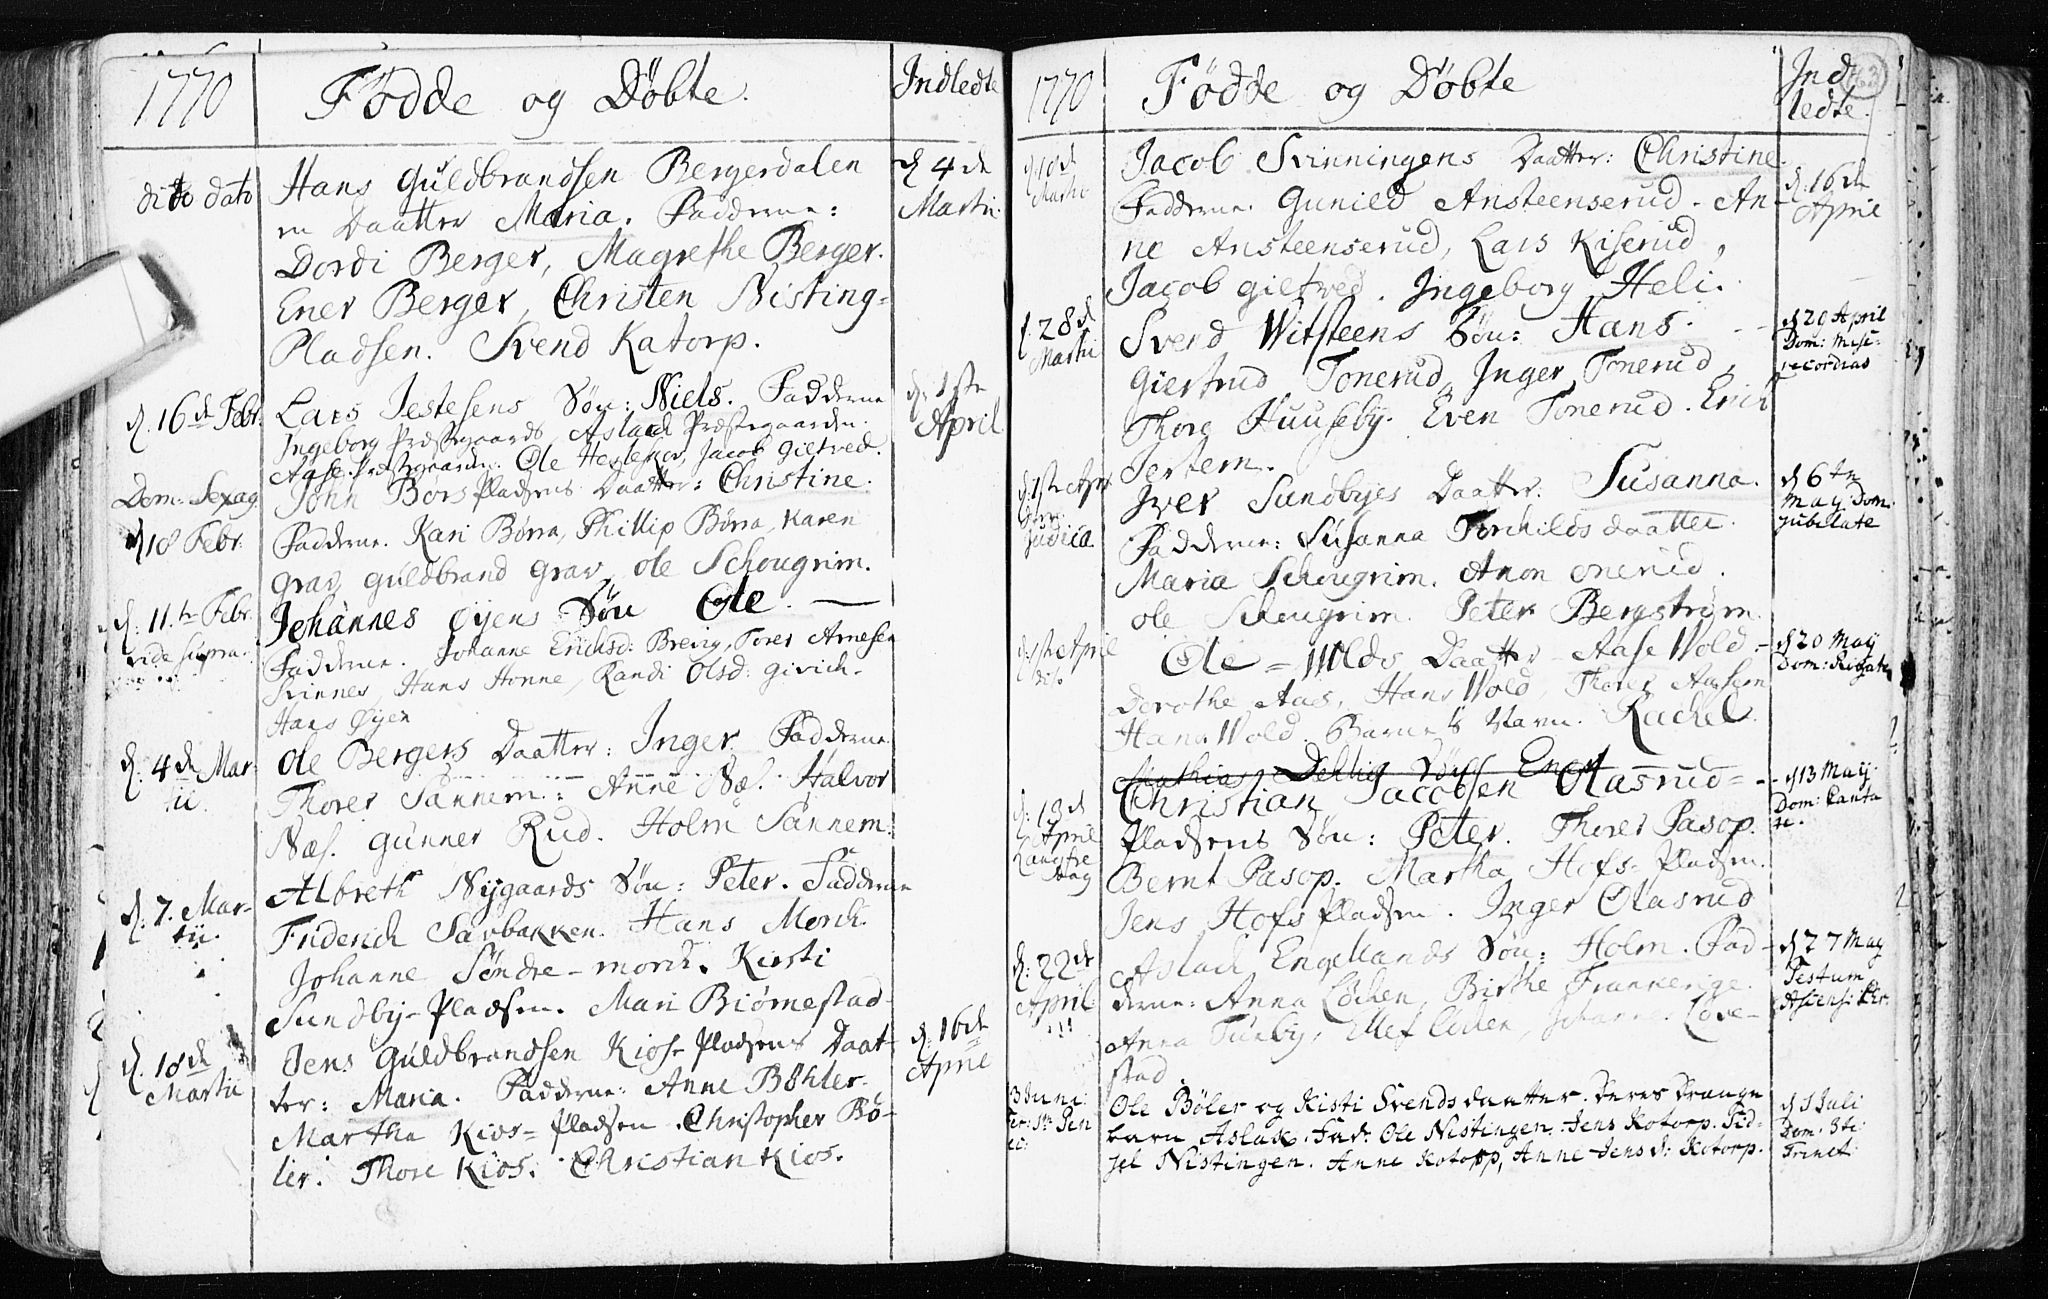 1770
Födde og Döbte.
Indledte
dito dato
Hans Guldbrandsen Bergerdalen
en Daatter Maria. Fadderne:
Dordi Berger, Magrethe Berger.
Ener Berger, Christen Nisting-
Pladsen. Svend Katorp.
d. 4de
Martii.
d. 16de Febr.
Lars Jestesens Sön: Niels. Fadderne
Ingeborg Præstegaards, Aslach Præstegaarden.
Aase Præstegaarden. Ole Heslesker, Jacob Gieltved.
d. 1ste
April
Dom: Sexag.
d 18 Febr.
John Börs Pladsens Daatter: Christine.
Fadderne. Kari Börsa, Phillip Börsa, Karen
Grav, Guldbrand Grav, Ole Schougrim.
d. 11te Febr.
vide supra.
Johannes Öyens Sön Ole.
Fadderne. Johanne Erichsd: Brevig, Torer Arnesen
Svinnes, Hans Honne, Randi Olsd: Givich.
Hans Öyen
d. 4de Mar-
tii.
Ole Bergers Daatter: Inger. Fadderne
Thorer Sannem: Anne Næs. Halvor
Næs. Gunner Rud. Holm Sannem.
d. 7. Mar-
tii.
Albreth Nygaards Sön: Peter. Fadderne
Friderich Sarbakken. Hans Morch.
Johanne Söndre-morch. Kirsti
Sundby-Pladsen. Mari Biörnestad
d. 18de
Martii
Jens Guldbrandsen Kios-Pladsens Daat-
ter: Maria. Fadderne: Anne Böhler.
Martha Kios-Pladsen. Christopher Bö-
ler. Thore Kios. Christian Kios.
d. 16de
April
1770
Födde og Döbte
Ind
ledte.
d. 18d
Martii
Jacob Svinningens Daatter: Christine.
Fadderne. Gunild Ansteenserud. An-
ne Ansteenserud, Lars Kiserud,
Jacob Gieltved. Ingeborg Heli.
d. 16de
April
d. 28d
Martii
Svend Witsteens Sön: Hans.
Giertrud Tonerud, Inger Tonerud,
Thore Huuseby. Even Tonerud. Erich
Jertem.
d 20 April
Dom: Mise-
recordias
d. 1ste Apr
Judica
Iver Sundbyes Daatter. Susanna.
Fadderne: Susanna Torchildsdaatter.
Maria Schougrim. Amon Onerud.
Ole Schougrim. Peter Bergström.
d 6te
May Dom.
Jubilate
d. 1ste April
Ole Wolds Daatter Aase Wold-
Dorothe Aas, Hans Wold, Thorer Aassem
Hans Wold. Barnets Navn. Rachel.
d 20 May
Dom: Rogate
Mathias Dehlig Sön Ener
d. 13d
April
Langfre
dag
Christian Jacobsen Olasrud-
Pladsens Sön: Peter. Thorer Pasop.
Bernt Pasop. Martha Hofs-Pladsen.
Jens Hofs Pladsen. Inger Olasrud
d 13 May.
Dom: Canta
te.
d. 22de
April
Aslach Engellands Sön: Holm. Fad-
derne: Anna Löchen, Birthe Frankerige.
Anna Tunby, Ellef Löchen, Johanne Love-
stad
d 27 May
Festum
Asiens: Chr.
3 Juni
Ole Böler og Kisti Svendsdaatter. Deres Drænge
barn Aslak. Fad: Ole Nistingen. Jens Kotorp. Sid-
sel Nistingen. Anne Kotorp, Anne Jens d: Kotorp.
d 1 Juli
Dom: 3ti
Trinit: